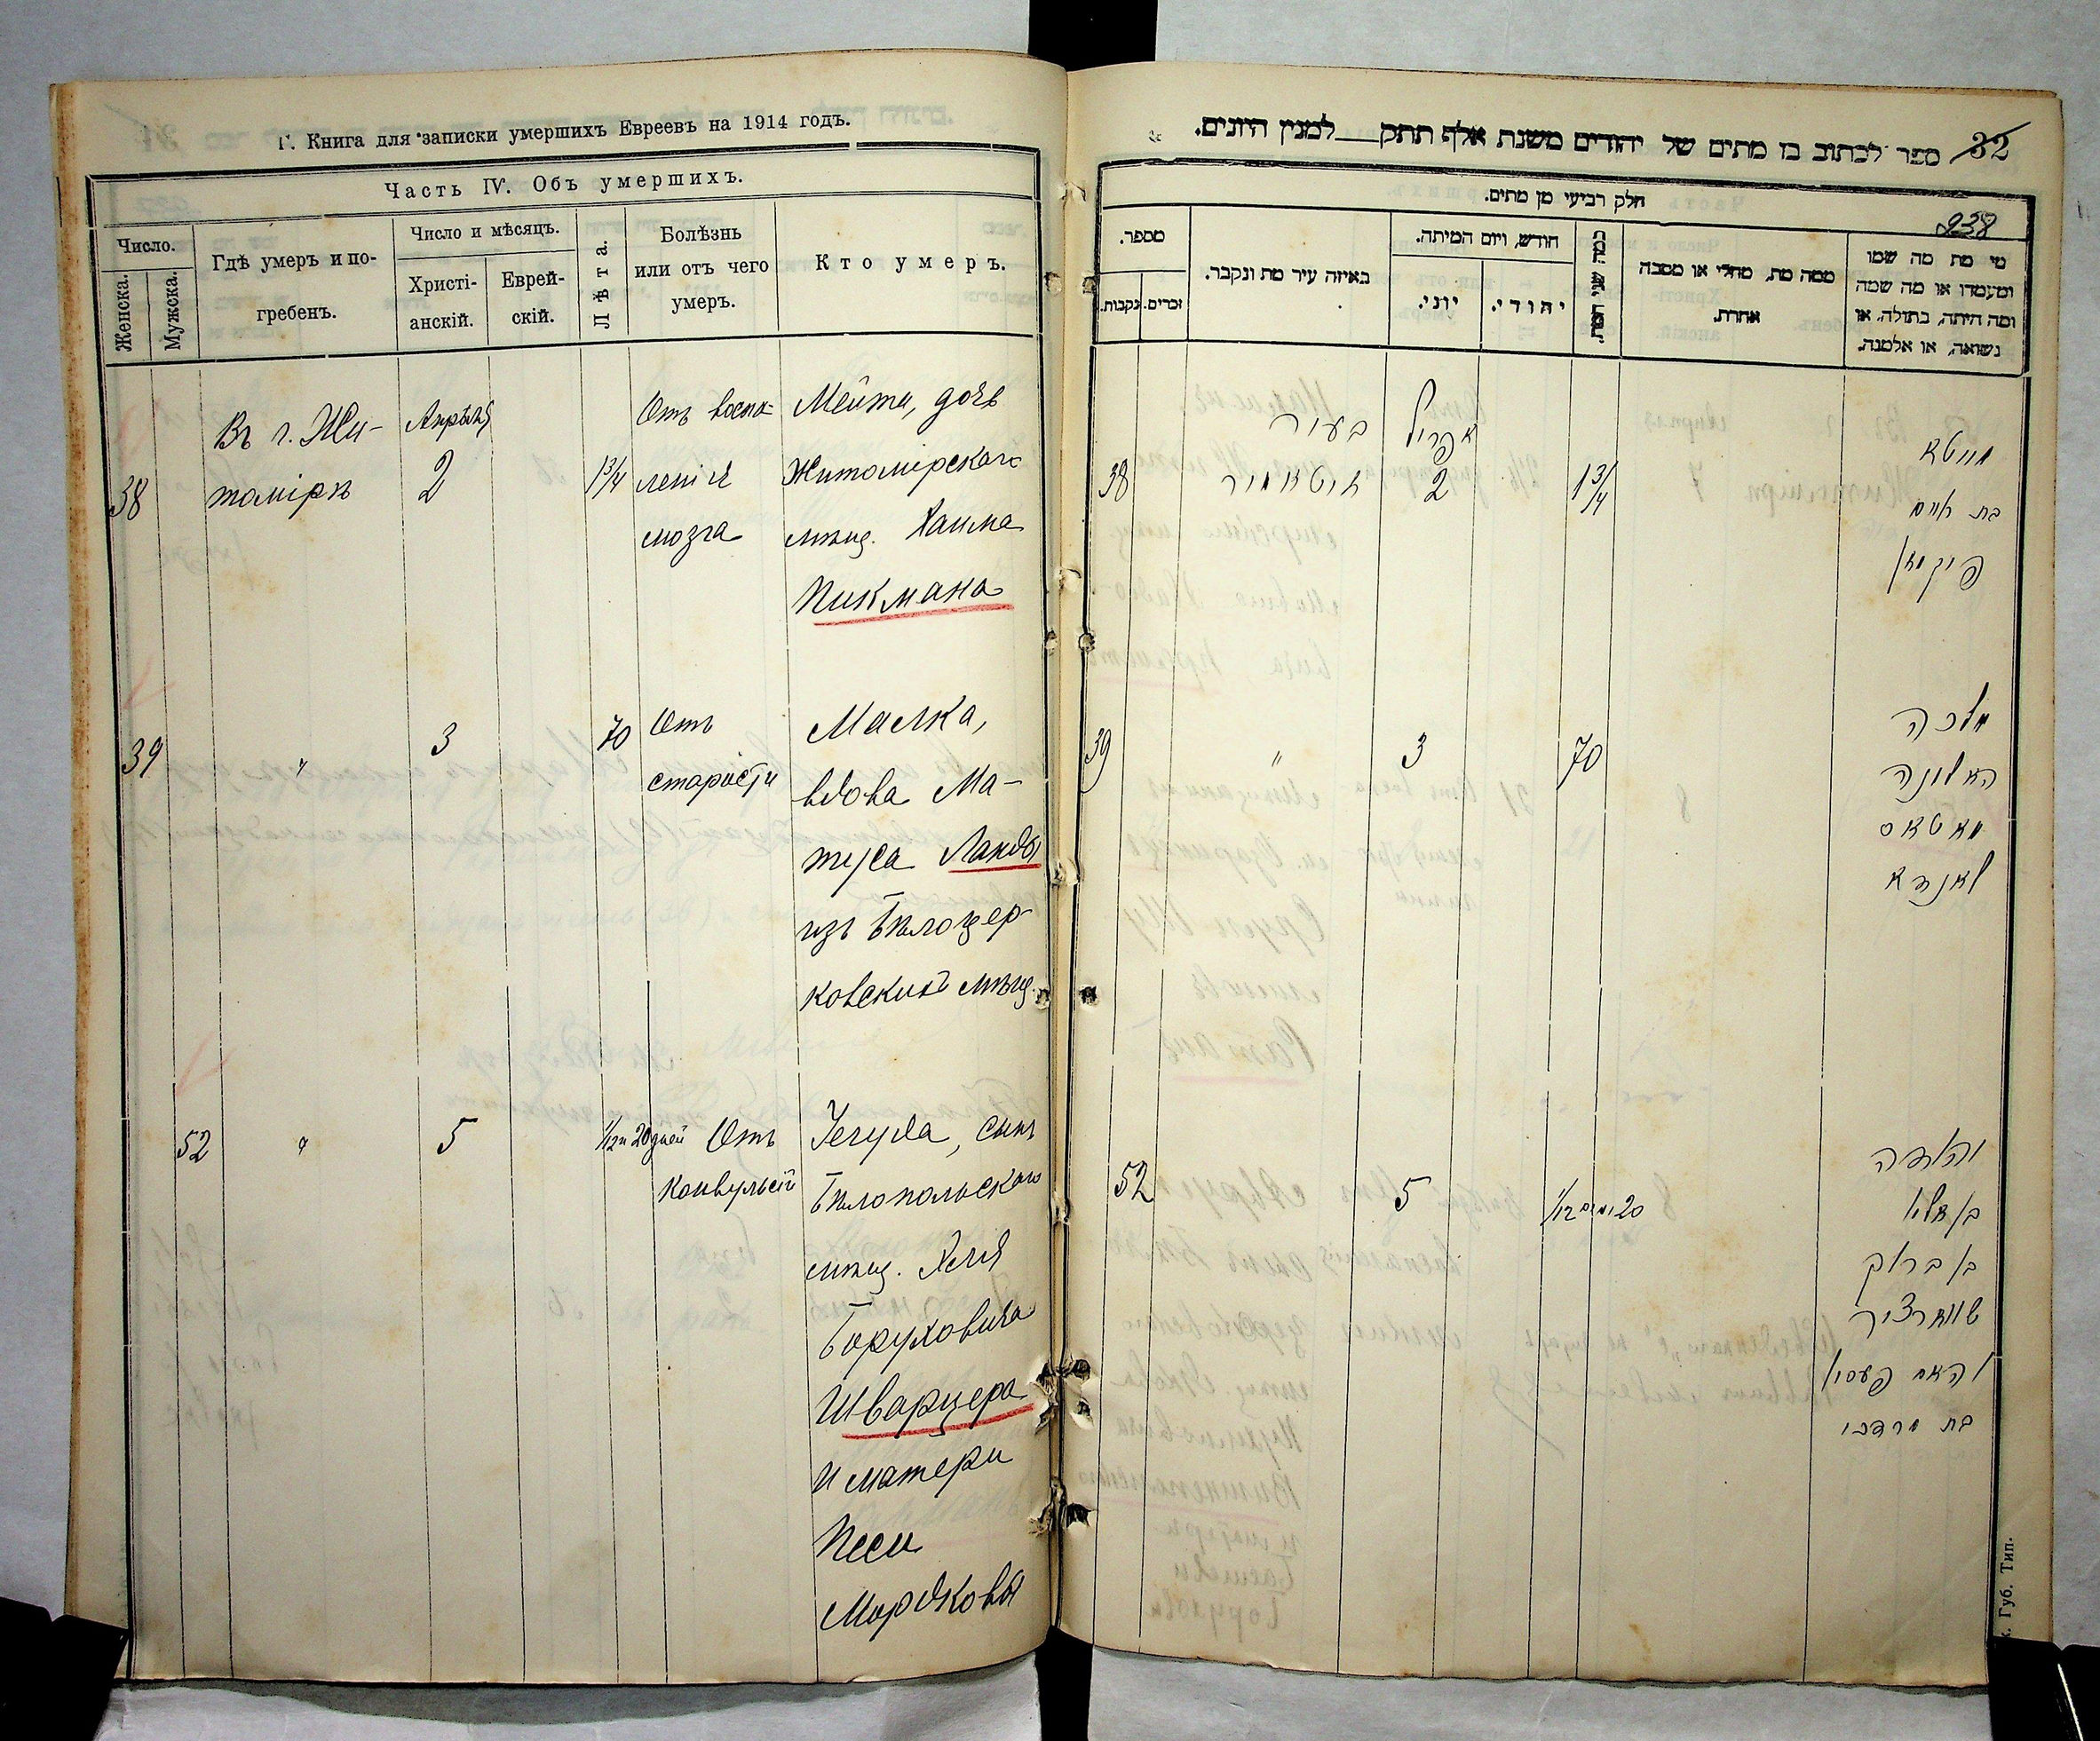 Г. Книга для записки умершихъ Евреевъ на 1914 годъ.
Часть IV. Объ умершихъ.
Число.
Женска.
Мужска.
Гдѣ умеръ и по-
гребенъ.
Число и мѣсяцъ.
Христі-
анскій.
Еврей-
скій.
Лѣта.
Болѣзнь
или отъ чего
умеръ.
Кто умеръ.
38
Въ г. Жи-
томірѣ
Апрѣля
2
1 3/4
Отъ воспа-
ленія
мозга
Мейта, дочь
Житомірскаго
мѣщ. Хаима
Пикмана
39
"
3
70
Отъ
старости
Малка,
вдова Ма-
туса Ланды
изъ Бѣлоцер-
ковскихъ мѣщ.
52
"
5
1/12 и 20 дней
Отъ
конвульсій
Іегуда, сынъ
Бѣлопольскаго
мѣщ. Хеля
Боруховича
Шварцера
и матери
Песи
Мордковы
32
ספר לכתוב בו מתים של יהודים משנת אלף תתק___למנין היונים.
238
חלק רביעי מן מתים.
מספר.
נקבות.
זכרים.
באיזה עיר מת ונקבר.
חודש, ויום המיתה.
יוני.
יהודי.
כמה שני המת.
ממה מת, מחלי או מסבה
אחרת.
מי מת מה שמו
ומעמדו או מה שמה
ומה היתה, בתולה, או
נשואה, או אלמנה.
38
בעיר
זיטאמיר
אפריל
2
1 3/4
מייטא
בת חיים
פיקמאן
39
"
3
70
מלכה
האלמנה
מאטאס
לאנדא
52
5
1/12 20
יהודה
בן
בן ברוך
שווארציר
והאם פעסי
בת מרדכי
к. Губ. Тип.